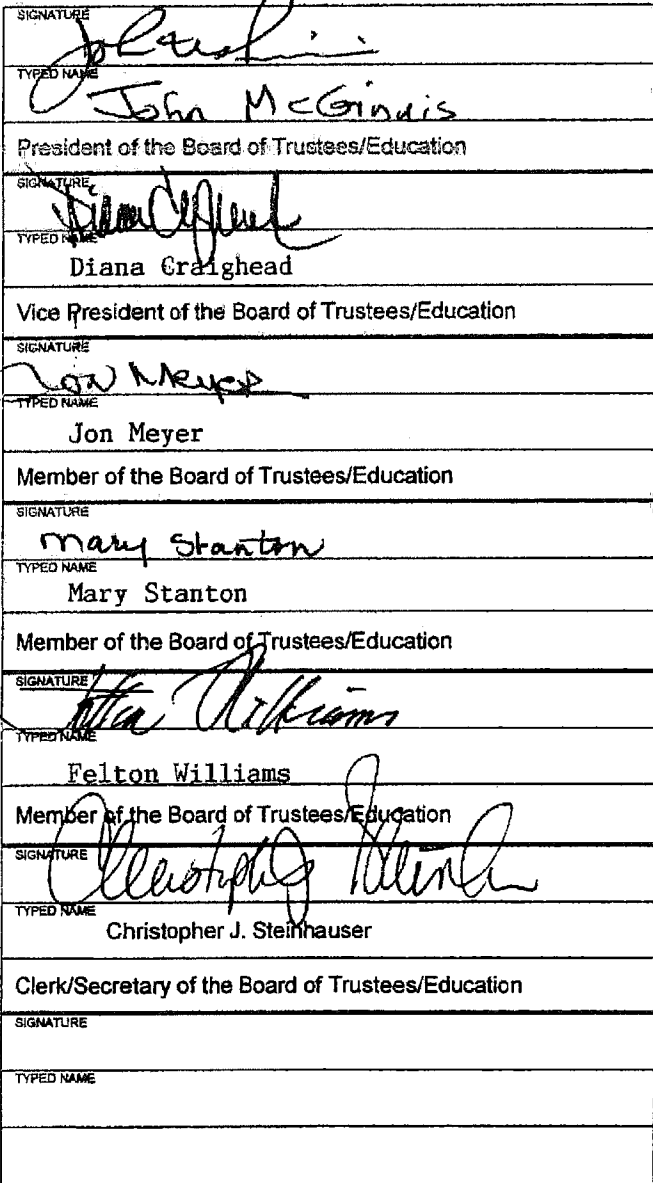 SIGNATURE
TYPED NAME
John McGinnis
President of the Board of Trustees/Education
SIGNATURE
TYPED NAME
Diana Craighead
Vice President of the Board of Trustees/Education
SIGNATURE
Jon Meyer
TYPED NAME
Jon Meyer
Member of the Board of Trustees/Education
SIGNATURE
Mary Stanton
TYPED NAME
Mary Stanton
Member of the Board of Trustees/Education
SIGNATURE
Williams
TYPED NAME
Felton Williams
Member of the Board of Trustees/Education
SIGNATURE
TYPED NAME
Christopher J. Steinhauser
Clerk/Secretary of the Board of Trustees/Education
SIGNATURE
TYPED NAME